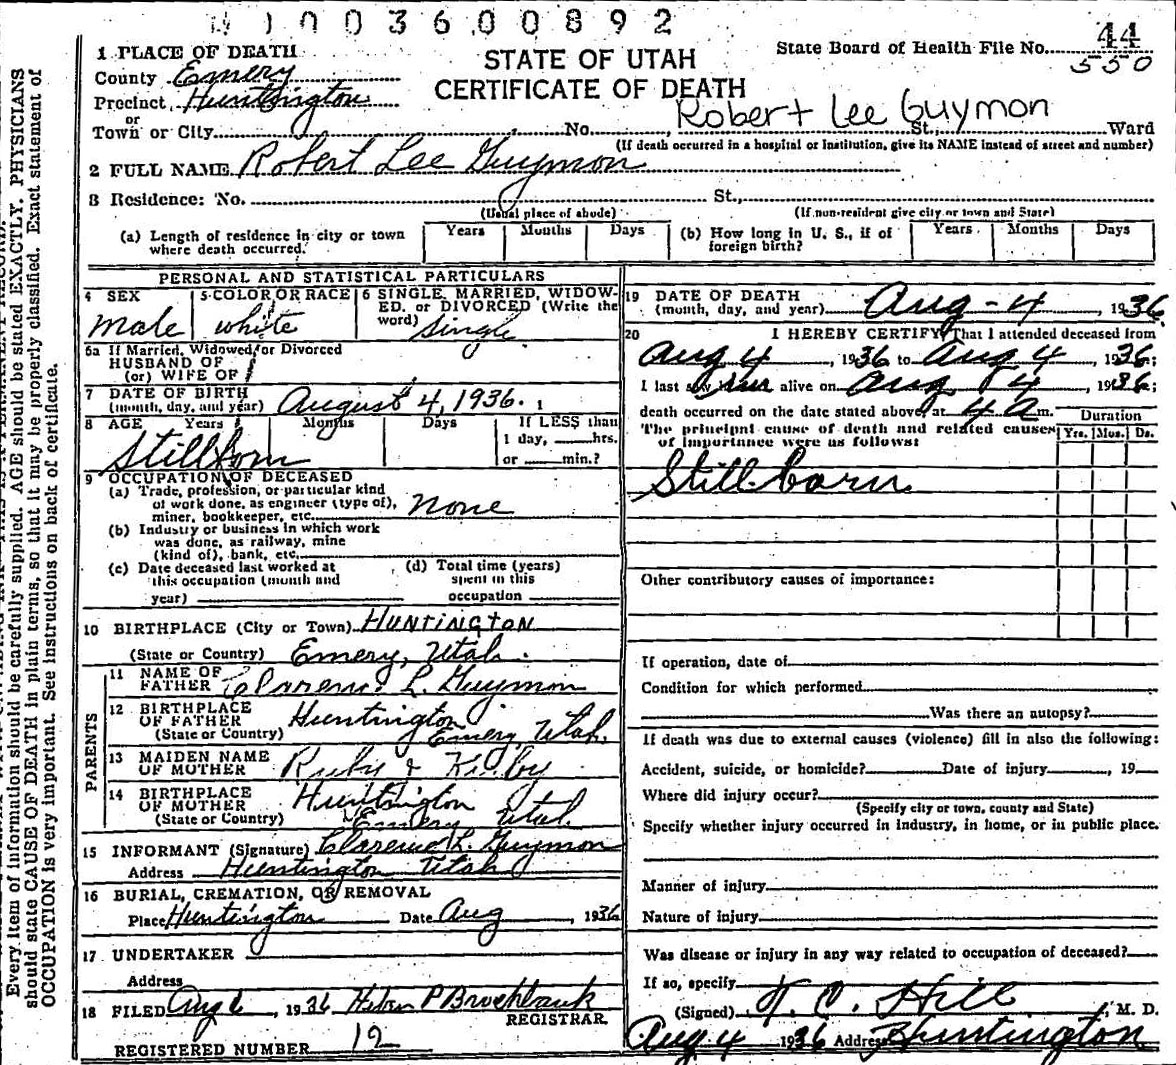 0 0 3 6 0 0 8 9 2
STATE OF UTAH
CERTIFICATE OF DEATH
State Board of Health File No. 44
550
1 PLACE OF DEATH
County Emery
Precinct Huntington
or
Town or City No. St., Ward
Robert Lee Guymon
(If death occurred in a hospital or institution, give its NAME instead of street and number)
2 FULL NAME Robert Lee Guymon
3 Residence: No. St.,
(Usual place of abode) (If non-resident give city or town and State)
(a) Length of residence in city or town where death occurred. Years Months Days
(b) How long in U. S., if of foreign birth? Years Months Days
PERSONAL AND STATISTICAL PARTICULARS
4 SEX Male
5 COLOR OR RACE white
6 SINGLE, MARRIED, WIDOWED, or DIVORCED (Write the word) Single
6a If Married, Widowed, or Divorced
HUSBAND OF
(or) WIFE OF
7 DATE OF BIRTH
(month, day, and year) August 4, 1936.
8 AGE Years Months Days If LESS than
1 day, hrs.
or min.?
Stillborn
9 OCCUPATION OF DECEASED
(a) Trade, profession, or particular kind
of work done, as engineer (type of),
miner, bookkeeper, etc. none
(b) Industry or business in which work
was done, as railway, mine
(kind of), bank, etc.
(c) Date deceased last worked at
this occupation (month and
year)
(d) Total time (years)
spent in this
occupation
10 BIRTHPLACE (City or Town) HUNTINGTON
(State or Country) Emery, Utah.
PARENTS
11 NAME OF
FATHER Clarence L. Guymon
12 BIRTHPLACE
OF FATHER Huntington
(State or Country) Emery, Utah.
13 MAIDEN NAME
OF MOTHER Ruby Kilby
14 BIRTHPLACE
OF MOTHER Huntington
(State or Country) Emery Utah
15 INFORMANT (Signature) Clarence L. Guymon
Address Huntington Utah
16 BURIAL, CREMATION, OR REMOVAL
Place Huntington Date Aug , 1936
17 UNDERTAKER
Address
18 FILED Aug 6, 1936 P Brockbank
REGISTRAR
REGISTERED NUMBER 12
19 DATE OF DEATH
(month, day, and year) Aug - 4 , 1936
20 I HEREBY CERTIFY, That I attended deceased from
Aug 4 , 1936 to Aug 4 , 1936;
I last saw him alive on Aug 4 , 1936;
death occurred on the date stated above, at 4 A m.
The principal cause of death and related causes
of importance were as follows:
Duration
Yrs. Mos. Ds.
Stillborn
Other contributory causes of importance:
If operation, date of
Condition for which performed
Was there an autopsy?
If death was due to external causes (violence) fill in also the following:
Accident, suicide, or homicide? Date of injury , 19
Where did injury occur?
(Specify city or town, county and State)
Specify whether injury occurred in industry, in home, or in public place.
Manner of injury
Nature of injury
Was disease or injury in any way related to occupation of deceased?
If so, specify
(Signed) T. C. Hill , M. D.
Aug 4 1936 Address Huntington
Every item of information should be carefully supplied. AGE should be stated EXACTLY. PHYSICIANS
should state CAUSE OF DEATH in plain terms, so that it may be properly classified. Exact statement of
OCCUPATION is very important. See instructions on back of certificate.